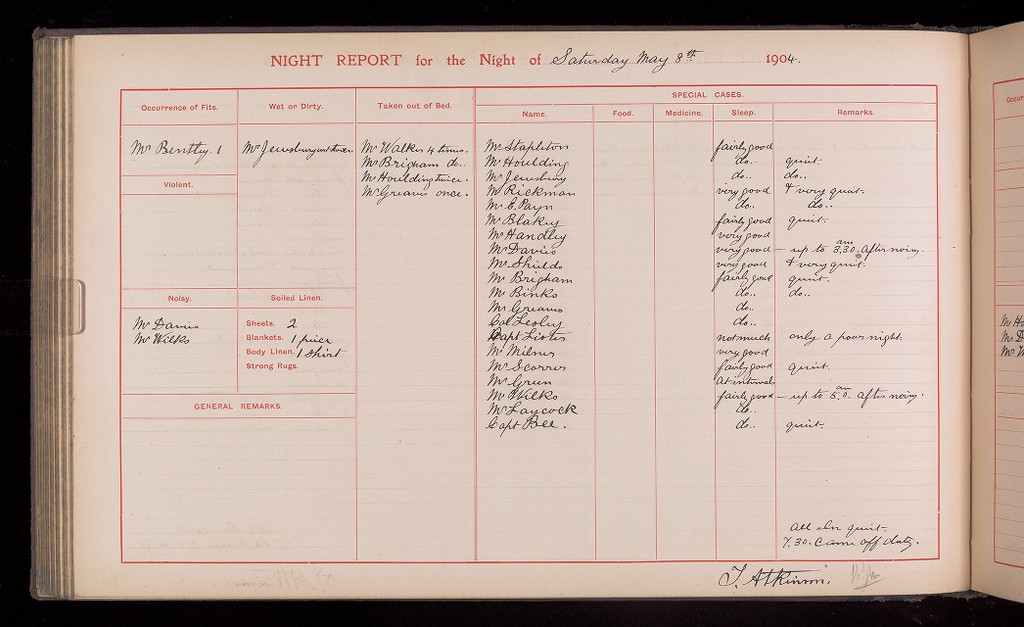 NIGHT REPORT for the Night of Saturday May 8th 1904.
Occurrence of Fits. Wet or Dirty. Taken out of Bed. SPECIAL CASES.
Name. Food. Medicine. Sleep. Remarks.
Mr Bentley. 1 Mr Jewsbury wet twice Mr Walker 4 times. Mr Stapleton fairly good
Mr Brigham do.. Mr Houlding do.. quiet.
Mr Houlding twice. Mr Jewsbury do.. do..
Violent. Mr Greaves once. Mr Rickman very good & very quiet.
Mr C. Payn do.. do..
Mr Blakey fairly good quiet.
Mr Handley very good
Mr Davis very good — up to 3.30. am After noisy.
Mr Shields very good & very quiet.
Mr Brigham fairly good quiet.
Mr Binks do.. do..
Noisy. Soiled Linen. Mr Greaves do..
Mr Davis Sheets. 2 Col Lesley do..
Mr Wilks Blankets. 1 piece Capt Lister not much only a poor night.
Body Linen. 1 shirt Mr Milner very good
Strong Rugs. Mr Scorrer fairly good quiet.
Mr Green At intervals
Mr Wilks fairly good — up to 5.0. am After noisy.
GENERAL REMARKS. Mr Laycock do..
Capt Bell. do.. quiet.
All else quiet.
7.30. Came off duty.
T. Atkinson.
Occur
Mr Ho
Mr D
Mr W